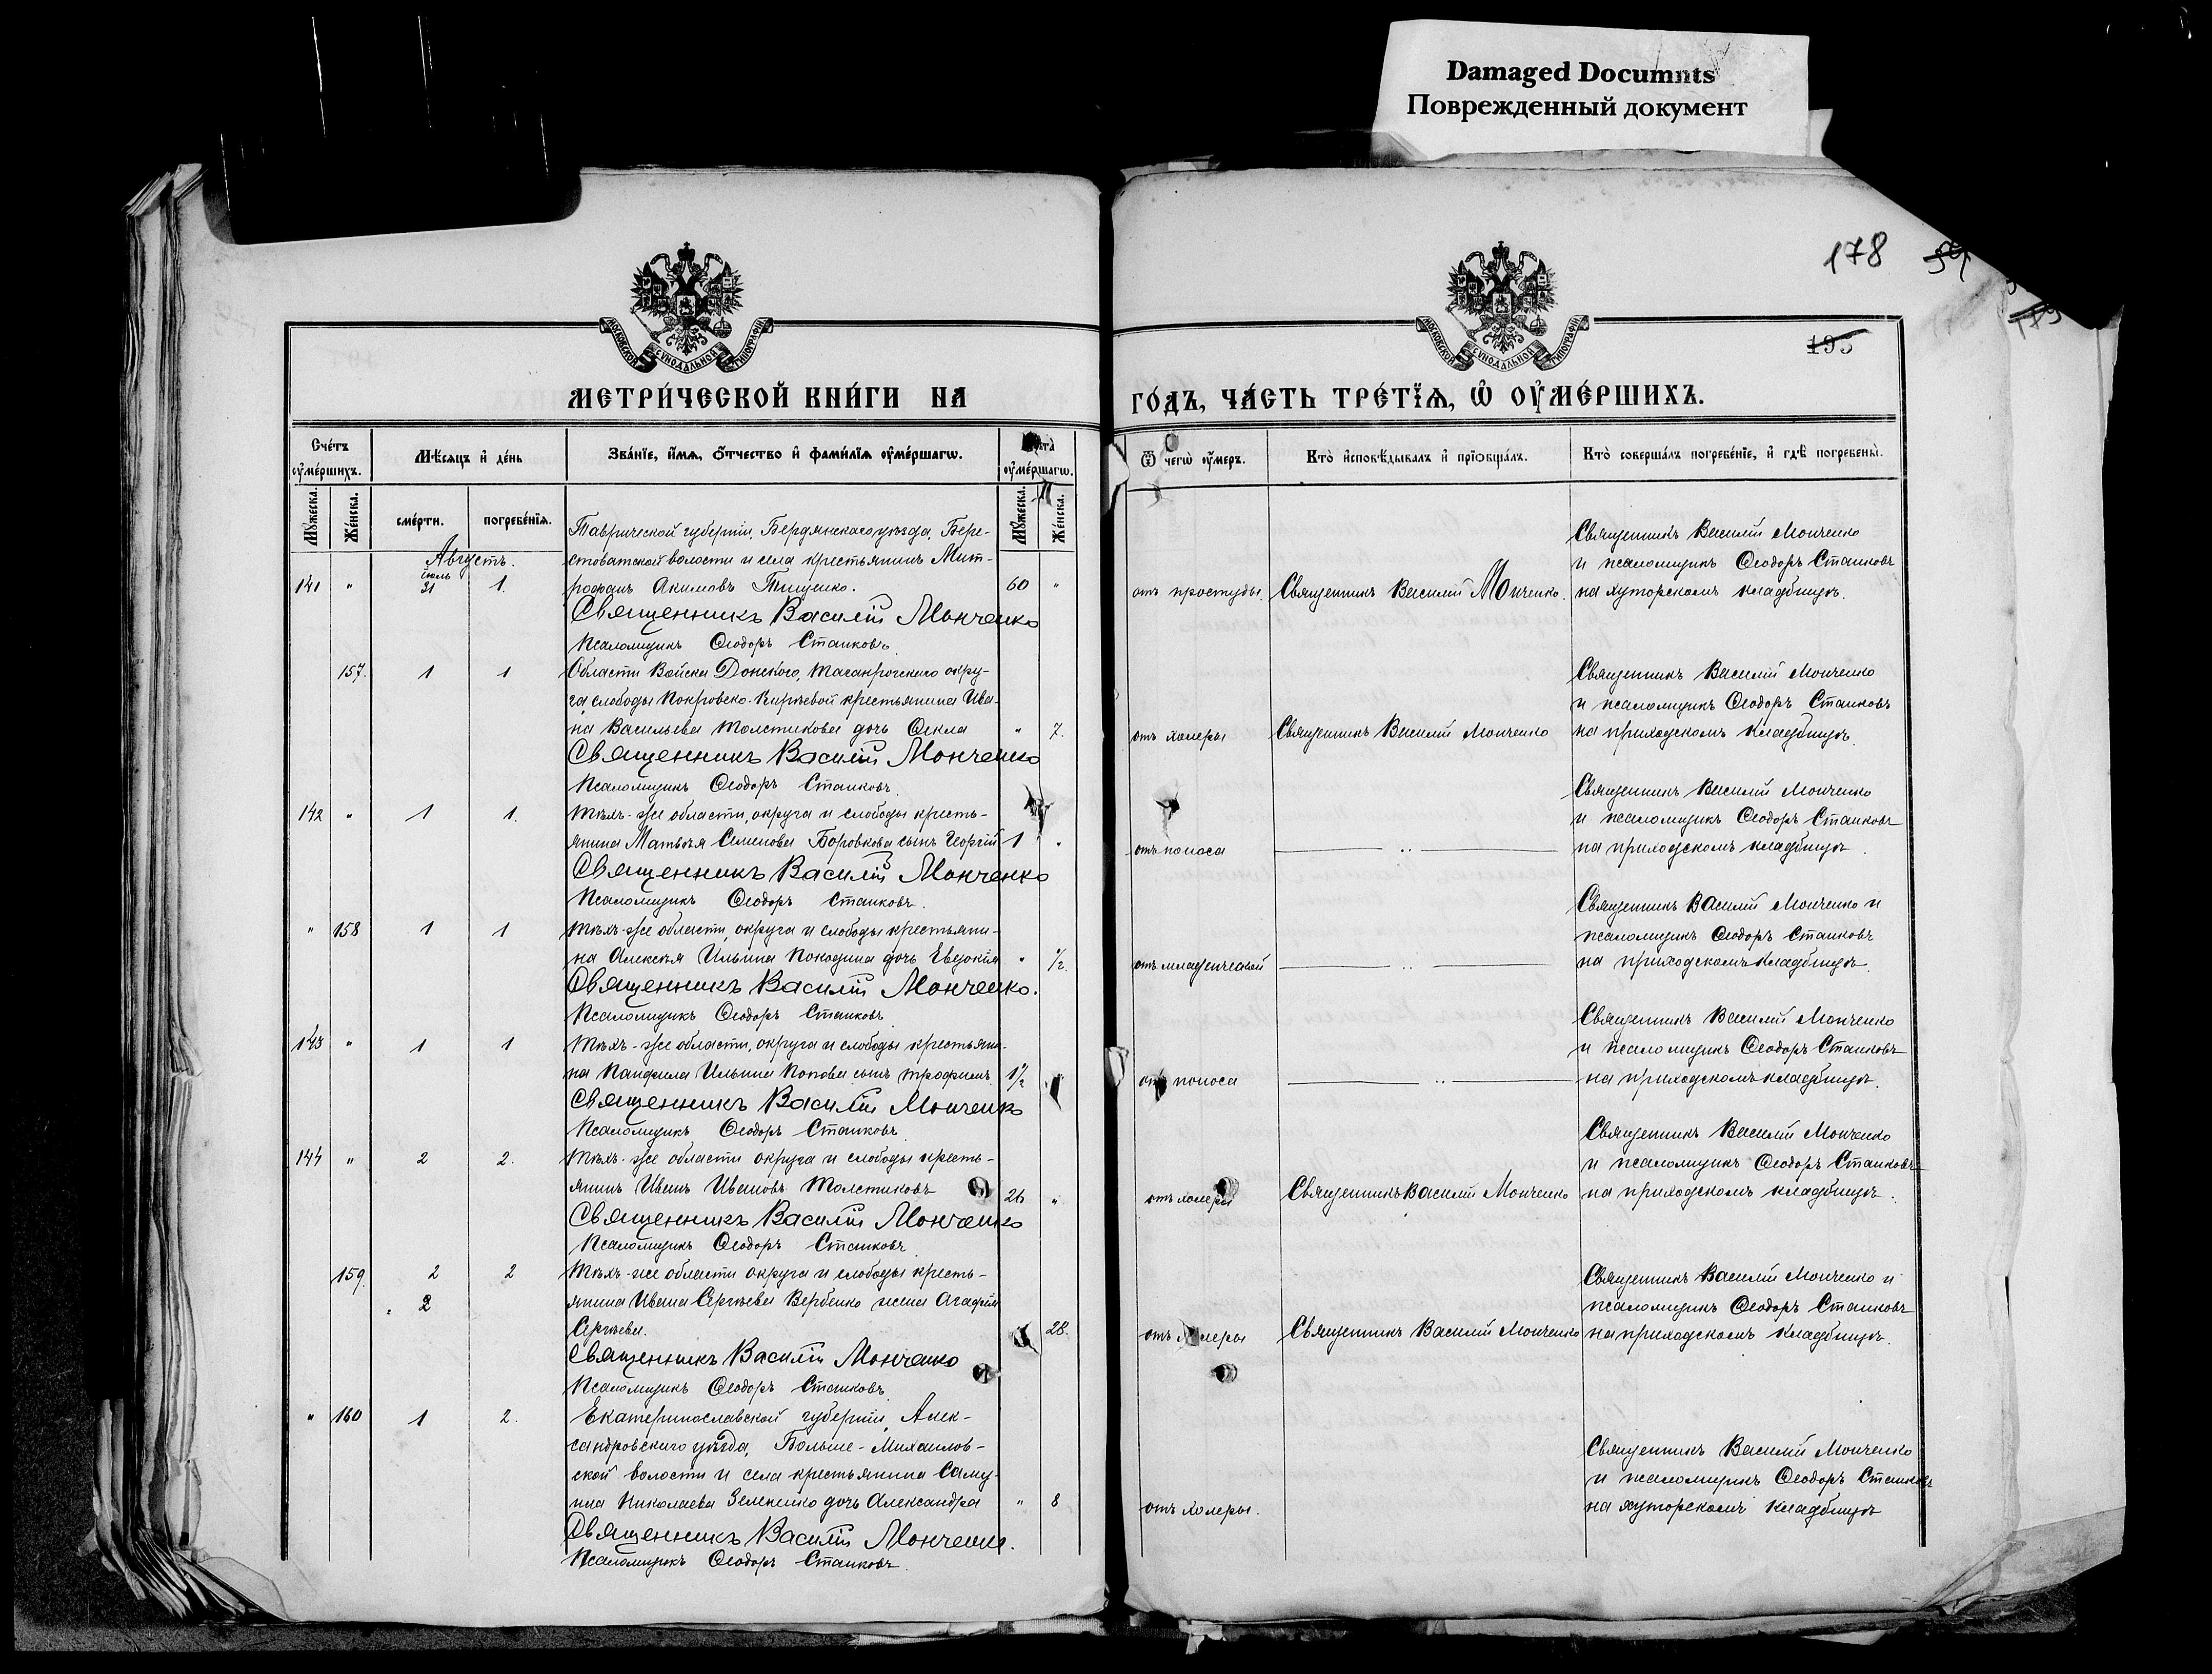 Damaged Documnts
Поврежденный документ
178
195
МОСКОВСКОЙ СѴНОДАЛЬНОЙ ТИПОГРАФІИ
МОСКОВСКОЙ СѴНОДАЛЬНОЙ ТИПОГРАФІИ
МЕТРИ́ЧЕСКОЙ КНИ́ГИ НА
ГО́ДЪ, ЧА́СТЬ ТРЕ́ТЇѦ, Ѡ҆ ОУ҆МЕ́РШИХЪ.
Сче́тъ оу҆ме́ршихъ.
Мѣ́сѧцъ и҆ де́нь
Зва́нїе, и҆́мѧ, ѻ҆́тчество и҆ фами́лїѧ оу҆ме́ршагѡ.
Лѣта̀ оу҆ме́ршагѡ.
Ѿ чегѡ̀ оу҆́меръ.
Кто̀ и҆сповѣ́дывалъ и҆ прїѻбща́лъ.
Кто̀ соверша́лъ погребе́нїе, и҆ гдѣ̀ погребены̀.
Мꙋ́жеска.
Же́нска.
сме́рти.
погребе́нїѧ.
Мꙋ́жеска.
Же́нска.
Августъ.
Таврической губерніи, Бердянскаго уѣзда, Бере-
стоватской волости и села крестьянинъ Мит-
141 " іюль 31 1. рофанъ Акимовъ Тищенко. 60 "
Священникъ Василій Монченко
Псаломщикъ Ѳеодоръ Станковъ.
отъ простуды. Священникъ Василій Монченко.
Священникъ Василій Монченко
и псаломщикъ Ѳеодоръ Станковъ
на хуторскомъ кладбищѣ.
157. 1 1 Области Войска Донского, Таганрогскаго окру-
га слободы Покровско-Кирѣевой крестьянина Ива-
на Васильева Толстикова дочь Ѳекла " 7.
Священникъ Василій Монченко
Псаломщикъ Ѳеодоръ Станковъ.
отъ холеры Священникъ Василій Монченко
Священникъ Василій Монченко
и псаломщикъ Ѳеодоръ Станковъ
на приходскомъ кладбищѣ.
142 " 1 1. Тѣхъ-же области, округа и слободы кресть-
янина Матвѣя Семенова Боровкова сынъ Георгій 1 "
Священникъ Василій Монченко
Псаломщикъ Ѳеодоръ Станковъ.
отъ поноса — " —
Священникъ Василій Монченко
и псаломщикъ Ѳеодоръ Станковъ
на приходскомъ кладбищѣ.
" 158 1 1 Тѣхъ-же области, округа и слободы крестьяни-
на Алексѣя Ильина дочь Евдокія " 1/2.
Священникъ Василій Монченко.
Псаломщикъ Ѳеодоръ Станковъ
отъ младенческой — " —
Священникъ Василій Монченко и
псаломщикъ Ѳеодоръ Станковъ
на приходскомъ кладбищѣ.
143 " 1 1 Тѣхъ-же области, округа и слободы крестьяни-
на Панфила Ильина Попова сынъ Трофимъ. 1 1/2 "
Священникъ Василій Монченко
Псаломщикъ Ѳеодоръ Станковъ
отъ поноса — " —
Священникъ Василій Монченко
и псаломщикъ Ѳеодоръ Станковъ
на приходскомъ кладбищѣ.
144 " 2 2. Тѣхъ-же области округа и слободы кресть-
янинъ Иванъ Ивановъ Толстиковъ 26 "
Священникъ Василій Монченко
Псаломщикъ Ѳеодоръ Станковъ.
отъ холеры Священникъ Василій Монченко
Священникъ Василій Монченко
и псаломщикъ Ѳеодоръ Станковъ
на приходскомъ кладбищѣ.
159. 2 2 Тѣхъ-же области округа и слободы кресть-
" 2 янина Ивана Сергѣева Вербенко жена Агафія
Сергѣева. 28.
Священникъ Василій Монченко
Псаломщикъ Ѳеодоръ Станковъ
отъ холеры Священникъ Василій Монченко
Священникъ Василій Монченко и
псаломщикъ Ѳеодоръ Станковъ
на приходскомъ кладбищѣ.
" 160 1 2. Екатеринославской губерніи, Алек-
сандровскаго уѣзда, Больше-Михаилов-
ской волости и села крестьянина Саму-
ила Николаева Зеленско дочь Александра " 8
Священникъ Василій Монченко.
Псаломщикъ Ѳеодоръ Станковъ.
отъ холеры.
Священникъ Василій Монченко
и псаломщикъ Ѳеодоръ Станковъ
на хуторскомъ кладбищѣ